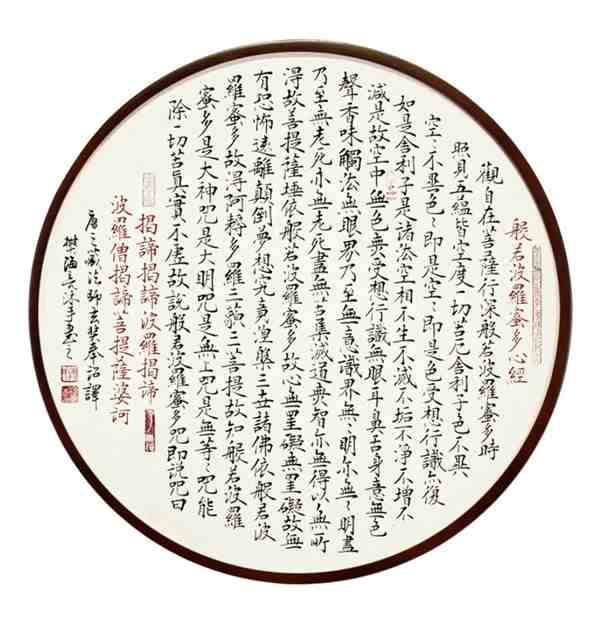 般若波羅蜜多心經
觀自在菩薩行深般若波羅蜜多時
照見五蘊皆空度一切苦厄舍利子色不異
空〻不異色〻即是空〻即是色受想行識亦復
如是舍利子是諸法空相不生不滅不垢不淨不增不
減是故空中無色無受想行識無眼耳鼻舌身意無色
聲香味觸法無眼界乃至無意識界無〻明亦無〻明盡
乃至無老死亦無老死盡無苦集滅道無智亦無得以無所
得故菩提薩埵依般若波羅蜜多故心無罣礙無罣礙故無
有恐怖遠離顛倒夢想究竟涅槃三世諸佛依般若波
羅蜜多故得阿耨多羅三藐三菩提故知般若波羅
蜜多是大神咒是大明咒是無上咒是無等〻咒能
除一切苦真實不虛故說般若波羅蜜多咒即說咒曰
揭諦揭諦波羅揭諦
波羅僧揭諦菩提薩婆訶
唐三藏法師玄奘奉詔譯
沐手書之